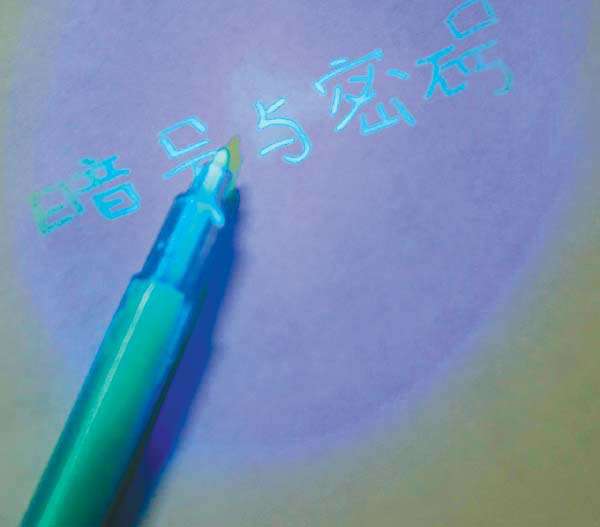 暗号与密码